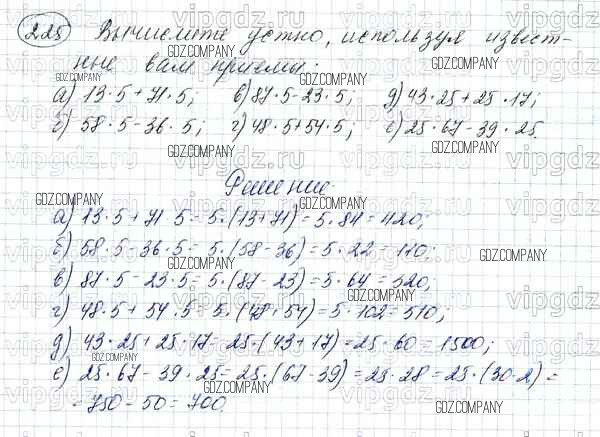 225 Вычислите устно, используя извест-
ные вам приемы:
а) 13·5+71·5; в) 87·5-23·5; д) 43·25+25·17;
б) 58·5-36·5; г) 48·5+54·5; е) 25·67-39·25.
Решение
а) 13·5+71·5=5·(13+71)=5·84=420;
б) 58·5-36·5=5·(58-36)=5·22=110;
в) 87·5-23·5=5·(87-23)=5·64=320,
г) 48·5+54·5=5·(48+54)=5·102=510;
д) 43·25+25·17=25·(43+17)=25·60=1500;
е) 25·67-39·25=25·(67-39)=25·28=25·(30-2)=
=750-50=700.
GDZ.COMPANY
vipgdz.com